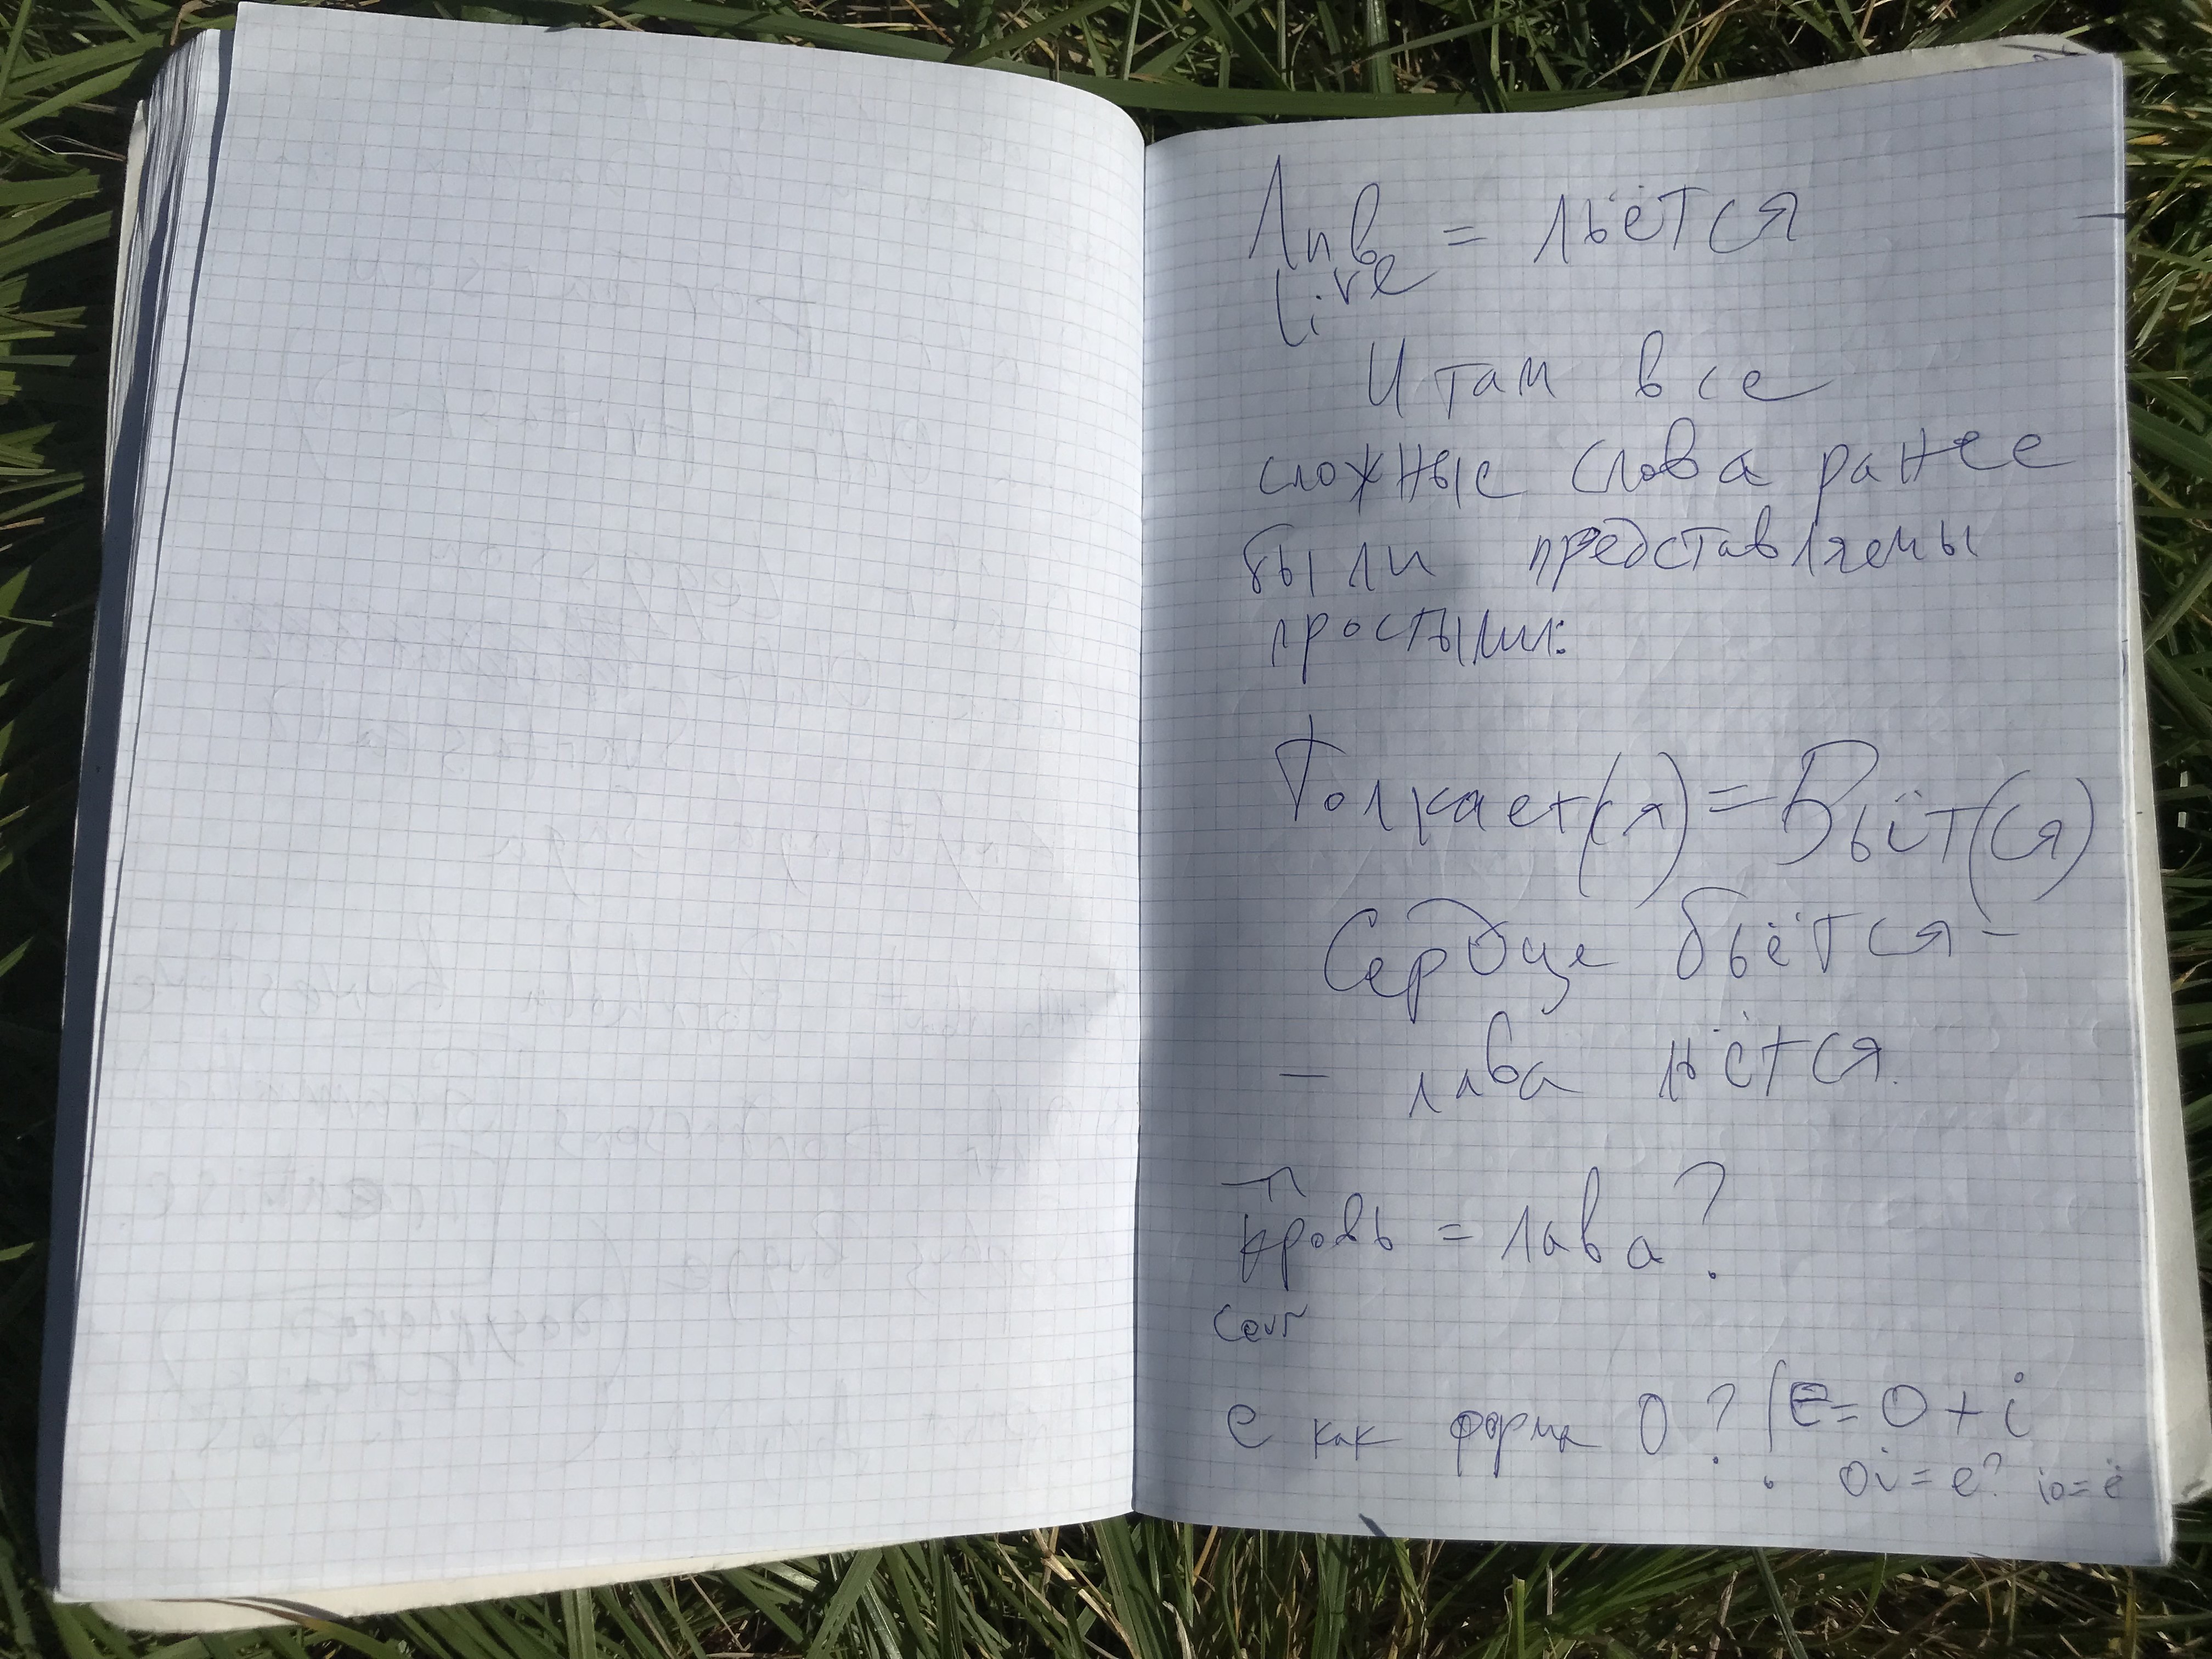 Лив = льётся
Live
И там все
сложные слова ранее
были представляемы
простыми:
Толкает(ся) = Вьёт(ся)
Сердце бьётся –
– лва льётся.
кровь = лава?
е как форма О? /е = о + i
oi = ё? io = ё